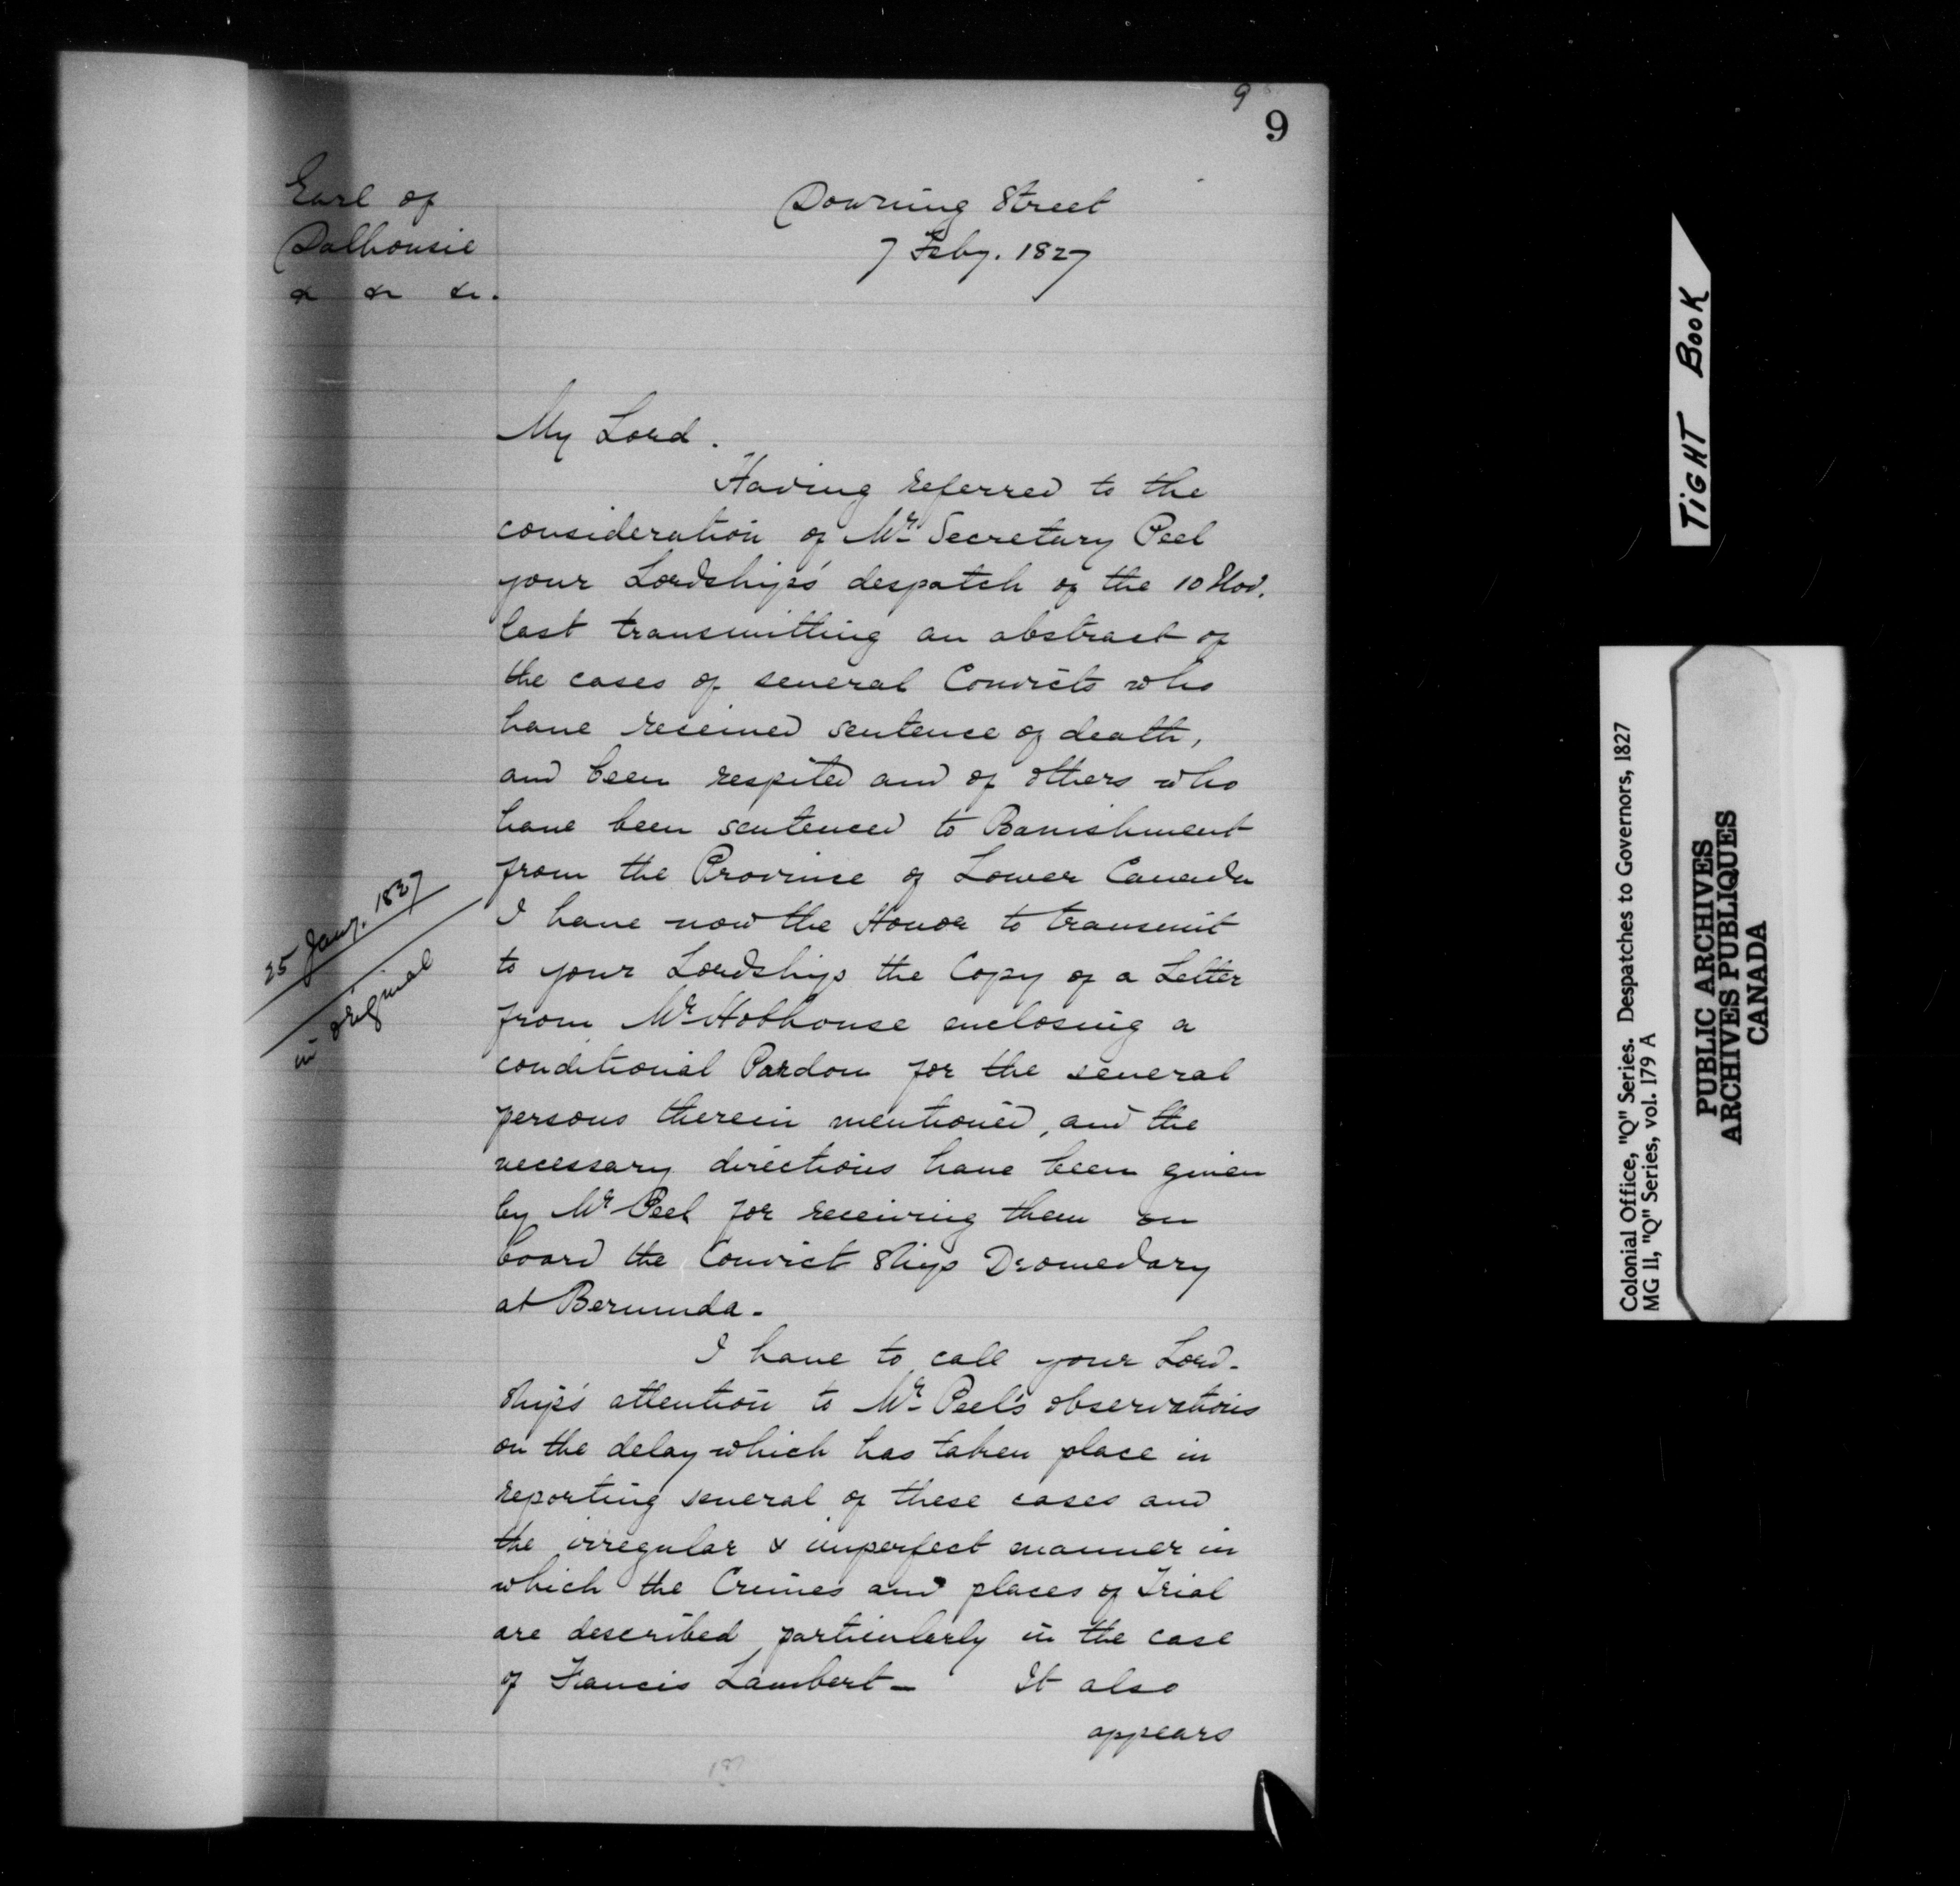 9
9
Earl of
Dalhousie
& & &.
Downing Street
7 Feby. 1827
My Lord.
Having referred to the
consideration of Mr Secretary Peel
your Lordship's despatch of the 10 Nov.
last transmitting an abstract of
the cases of several Convicts who
have received sentence of death,
and been respited and of others who
have been sentenced to Banishment
from the Province of Lower Canada
I have now the Honor to transmit
to your Lordship the Copy of a Letter
from Mr Hobhouse enclosing a
conditional Pardon for the several
persons therein mentioned, and the
necessary directions have been given
by Mr Peel for receiving them on
board the Convict Ship Dromedary
at Bermuda.
25 Jany. 1827
in original
I have to call your Lord-
ship's attention to Mr Peel's observations
on the delay which has taken place in
reporting several of these cases and
the irregular & imperfect manner in
which the Crimes and places of Trial
are described particularly in the case
of Francis Lambert - It also
appears
TIGHT BOOK
Colonial Office, "Q" Series. Despatches to Governors, 1827
MG 11, "Q" Series, vol. 179 A
PUBLIC ARCHIVES
ARCHIVES PUBLIQUES
CANADA